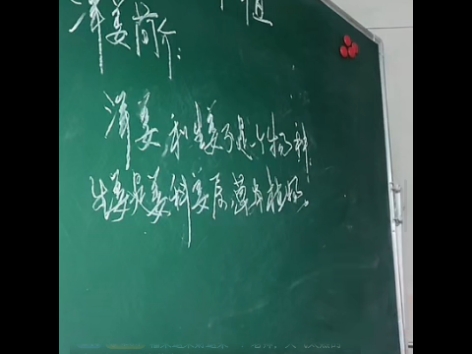 洋姜简介:
洋姜,和生姜不是一个物种
生姜是姜科姜属草本植物。